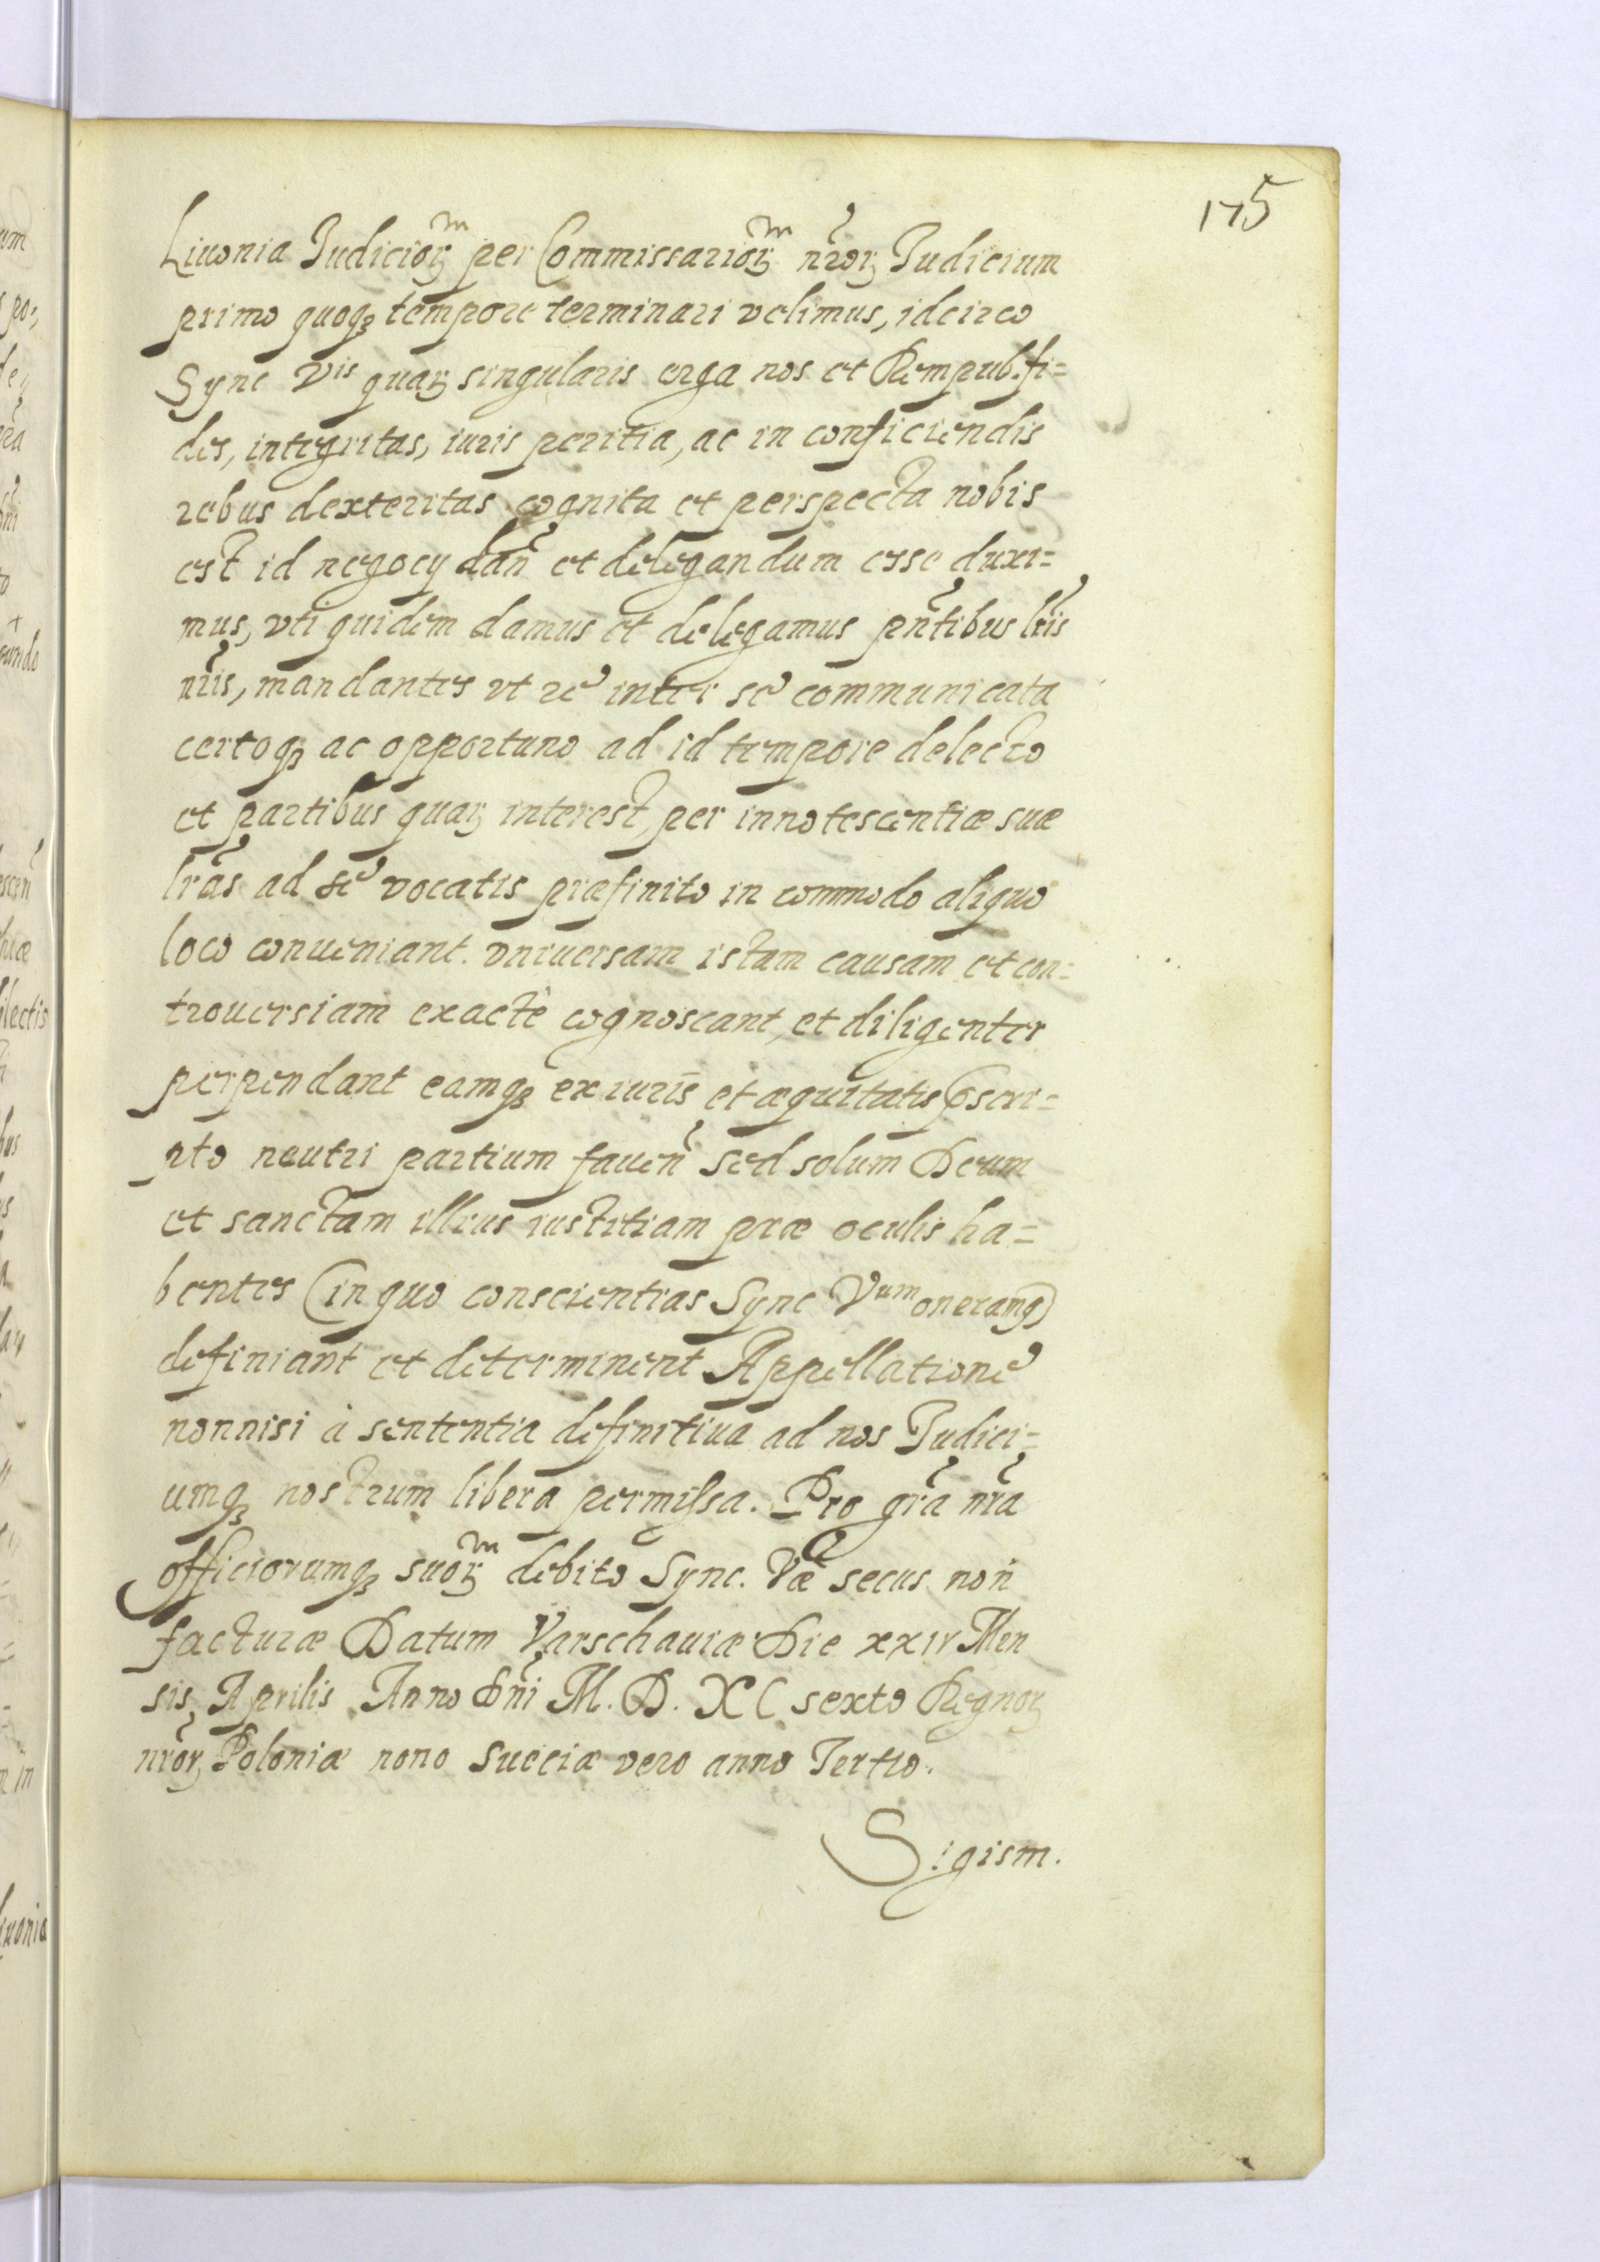 175
Liuonia Judiciorꝫ per Commissariorꝫ nr̃orꝫ Judicium
primo quoqꝫ tempore terminari velimus, idcirco
Sync Vis quarꝫ singularis erga nos et Rempub. fi=
des, integritas, iuris peritia, ac in conficiendis
rebus dexteritas cognita et perspecta nobis
est id negocy dañ et delegandum esse duxi=
mus, vti quidem damus et delegamus pñtibus lr̃is
nr̃is, mandantes vt rẽ inter sẽ communicata
certoqꝫ ac opportuno ad id tempore delecto
et partibus quarꝫ interest per innotescentiæ suæ
lr̃as ad sẽ vocatis præfinito in commodo aliquo
loco conueniant. vniuersam istam causam et con=
trouersiam exactè cognoscant, et diligenter
perpendant eamqꝫ ex iuris et æquitatis p̃scri=
pto neutri partium faueñ sed solum Deum
et sanctam illius iustitiam præ oculis ha=
bentes (in quo conscientias Sync Vum oneramꝗ)
definiant et determinent Appellationẽ
nonnisi à sententia definitiua ad nos Judici=
umqꝫ nostrum libera permissa. Pro gr̃a nr̃a
officiorumqꝫ suorꝫ debito Sync. Væ secus non
facturæ Datum Varschauiæ Die xxiv Men
sis Aprilis Anno Dñi M. D. XC sexto Regnorꝫ
nr̃orꝫ Poloniæ nono Sueciæ vero anno Tertio.
Sigism.